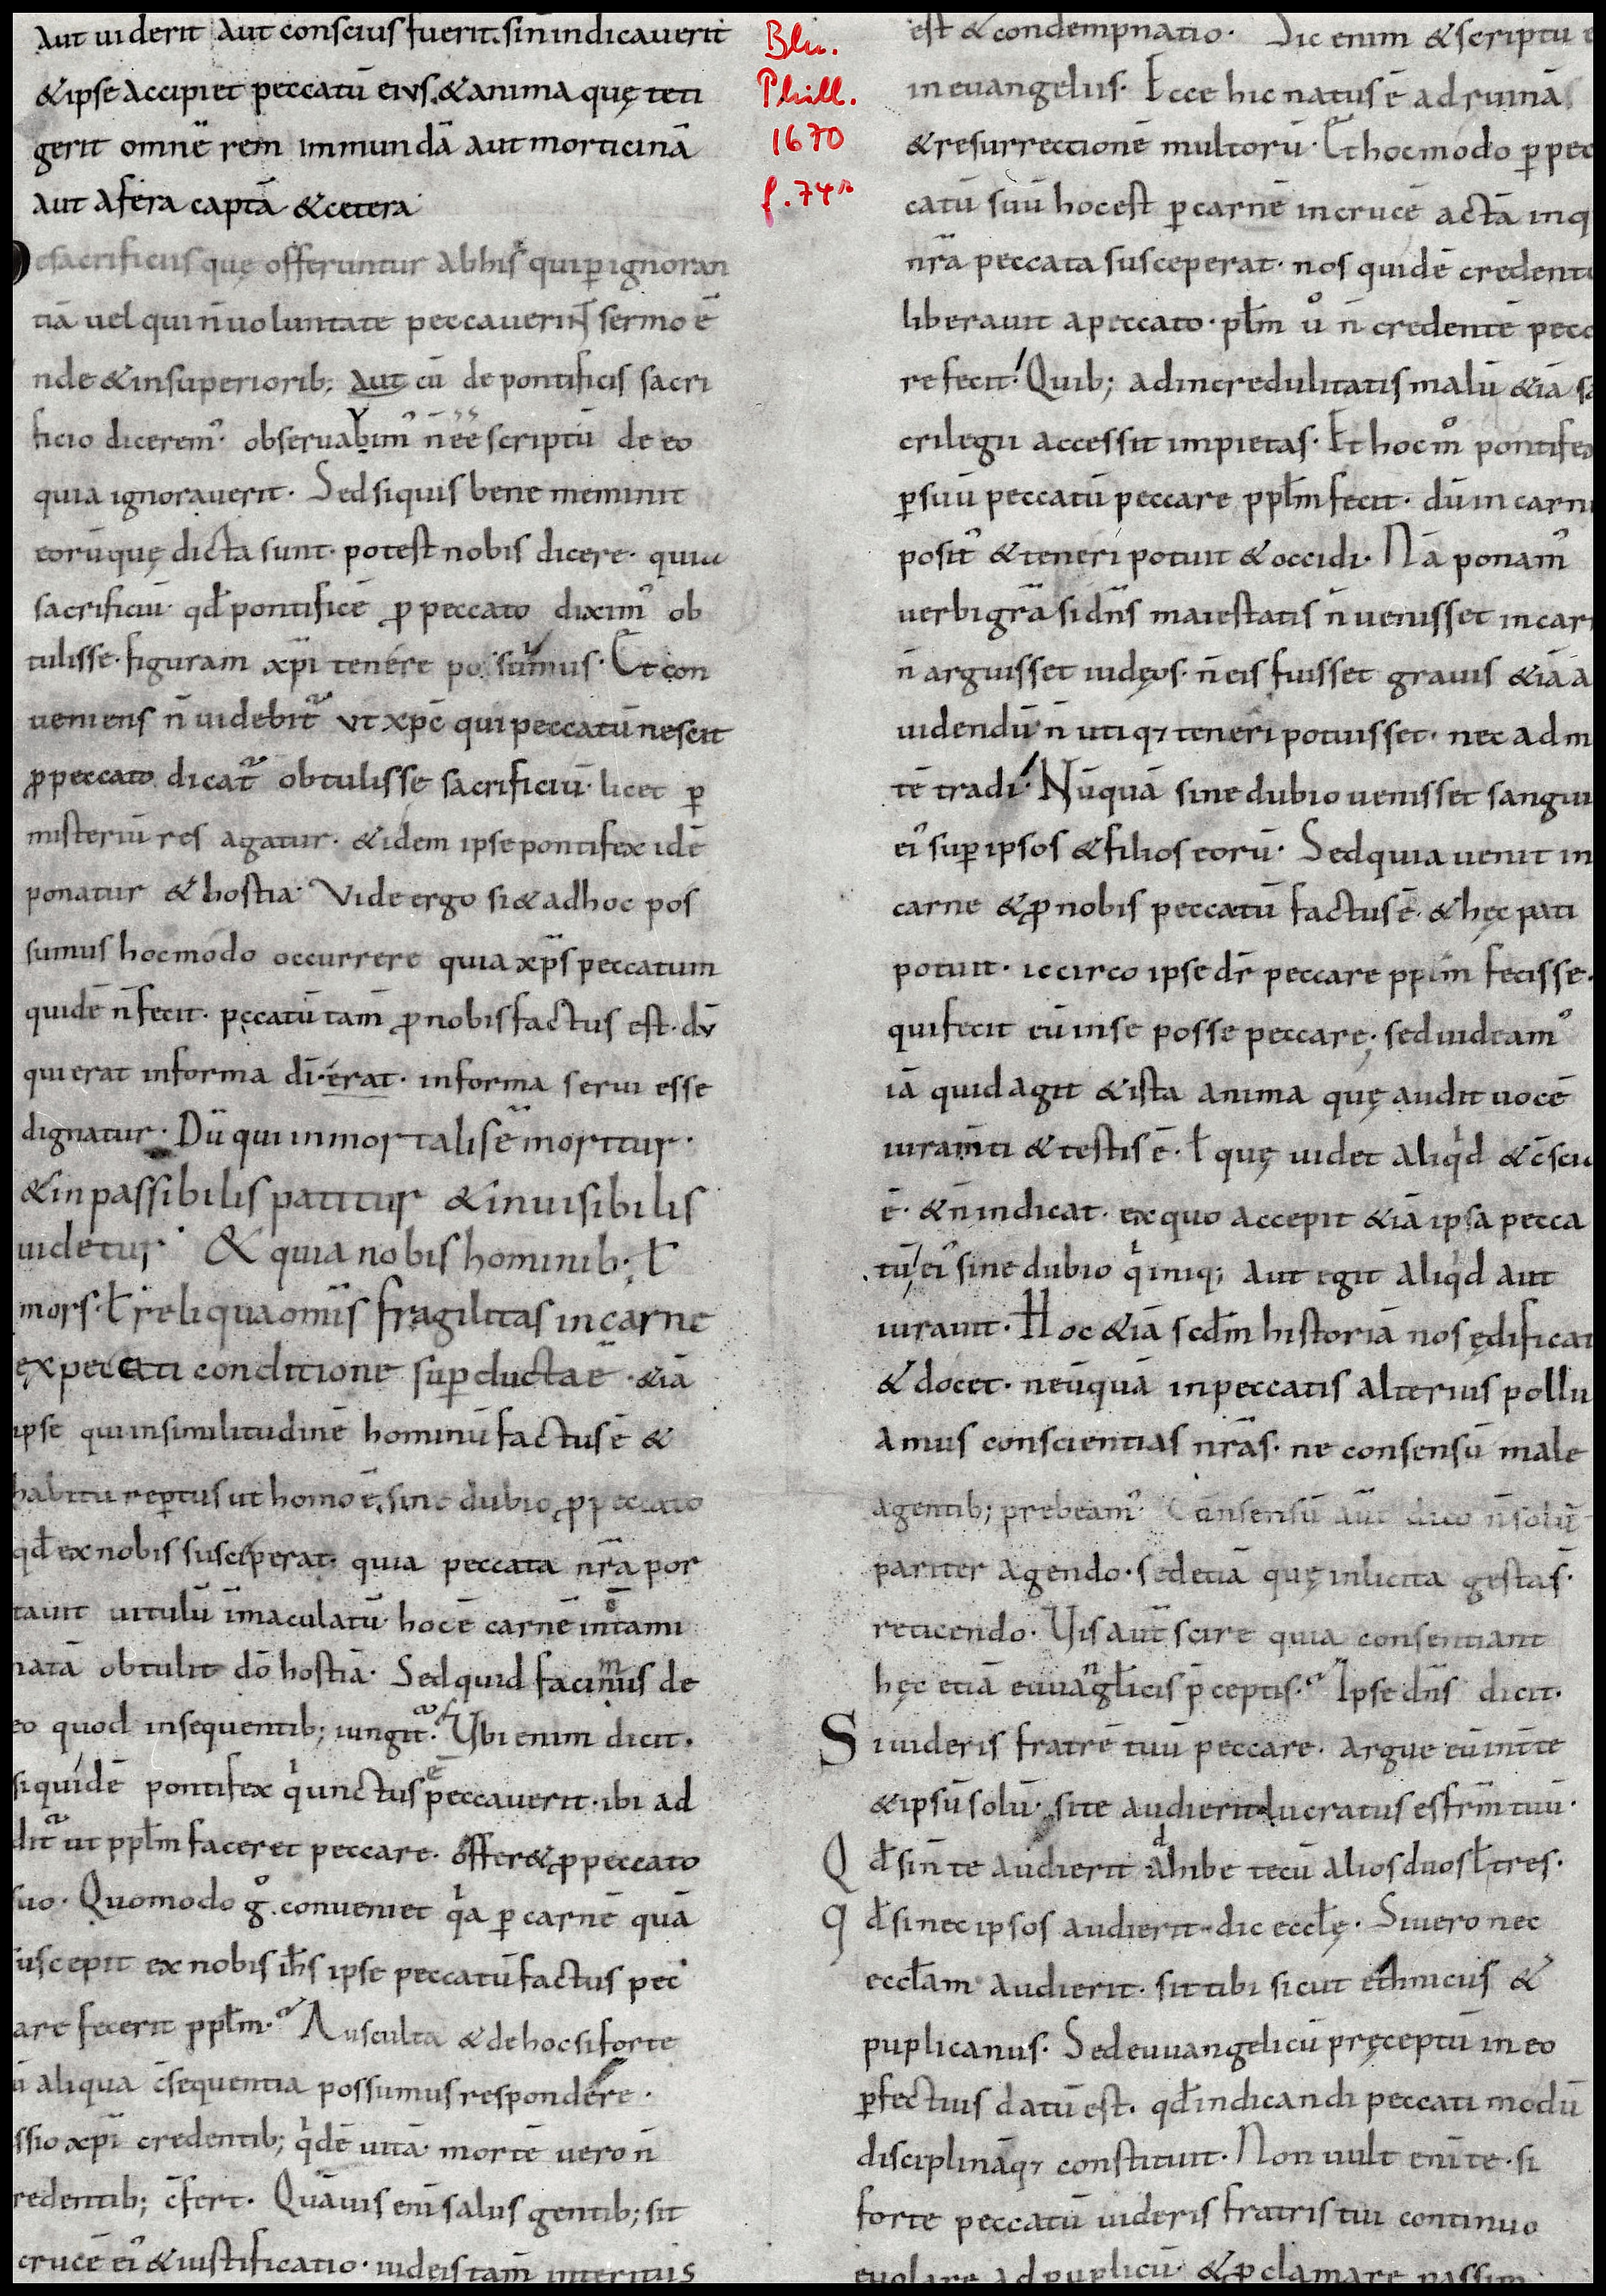 aut uiderit aut conscius fuerit. sin̄ indicauerit
&ipse accipiet peccatū eius. &anima quę teti
gerit omnē rem immundā aut morticinā
aut afera captā &cetera
Desacrificiis quę offeruntur abhis qui ꝑignoran
tiā uel qui n̄ uoluntate peccauerint sermo ē
nde &insuperiorib; aut cū de pontificis sacri
ficio diceremꝰ. obseruabimꝰ n̄ eē scriptū de eo
quia ignorauerit. Sed siquis bene meminit
eorū quę dicta sunt. potest nobis dicere. quia
sacrificiū. qđ pontificē ꝓ peccato diximꝰ ob
tulisse. figuram xp̄i tenere posumus. Et con
ueniens n̄ uidebit᷑ ut xp̄c qui peccatū nescit
ꝓ peccato dicat᷑ obtulisse sacrificiū. licet ꝑ
misteriū res agatur. &idem ipse pontifex idē
ponatur & hostia. Vide ergo si & adhoc pos
sumus hocmodo occurrere quia xp̄s peccatum
quidē n̄ fecit. pęccatū tam̄ ꝓ nobis factus est. dū
qui erat informa dī. erat. informa serui esse
dignatur. Dū qui inmortalis ē moritur.
&inpassibilis patitur &inuisibilis
uidetur. & quia nobis hominib; ł
mors. ł reliqua om̄is fragilitas incarne
expeccati conditione suꝑducta ē. &iā
ipse qui insimilitudinē hominū factus ē &
habitu reꝑtus ut homo ē. sine dubio ꝓ peccato
qđ ex nobis susceperat. quia peccata nr̄a por
tauit uitulū īmaculatū. hoc ē carnē intami
natā obtulit dō hostiā. Sed quid facimus de
eo quod insequentib; iungit᷑. Vbi enim dicit.
siquidē pontifex qͥ unctus ē peccauerit. ibi ad
dit᷑ ut ppłm faceret peccare. offer& ꝓ peccato
suo. Quomodo gͦ. conueniet qͥa ꝑ carnē quā
suscepit ex nobis ih̄s ipse peccatū factus pec
are fecerit ppłm. Ausculta &dehoc si forte
ū aliqua c̄sequentia possumus respondere.
ssio xp̄i credentib; qͥdē uitā. mortē uero n̄
redentib; c̄fert. Quāuis enī salus gentib; sit
crucē eiꝰ &iustificatio. iudeis tam̄ interitus
Blu.
Phill.
1670
f. 74ʳ
est &condempnatio. Sic enim &scriptū e
ineuangeliis. Ecce hic natus ē ad ruinā
&resurrectionē multorū. Et hocmodo ꝑ pec
catū suū hocest ꝑ carnē incrucē actā inq
nr̄a peccata susceperat. nos quidē credent
liberauit apeccato. płm ůͦ n̄ credentē pecc
re fecit. Quib; adincredulitatis malū &iā sa
crilegii accessit impietas. Et hoc mͦ pontifex
ꝑsuū peccatū peccare ppłm fecit. dū incarn
positꝰ &teneri potuit &occidi. Nā ponamꝰ
uerbi gr̄a si dn̄s maiestatis n̄ uenisset incar
n̄ arguisset iudęos. n̄ eis fuisset grauis &iā a
uidendū n̄ utiqꝫ teneri potuisset. nec ad m
tē tradi. Nūquā sine dubio uenisset sangui
eiꝰ suꝑ ipsos &filios eorū. Sed quia uenit in
carne &ꝓ nobis peccatū factus ē. &hęc pati
potuit. iccirco ipse dr̄ peccare ppłm fecisse.
qui fecit eū inse posse peccare. sed uideamꝰ
iā quid agit &ista anima quę audit uocē
iuram̄ti &testis ē. ł quę uidet aliqͥd &c̄sciu
ē. &n̄ indicat. ex quo accepit &iā ipsa pecca
tū eiꝰ sine dubio qͥ iniq; aut egit aliqͥd aut
iurauit. Hoc &iā scđm historiā nos ędificat
&docet. neūquā inpeccatis alterius pollu
amus conscientias nr̄as. ne consensū male
agentib; prebeamꝰ. Consensū aūt dico n̄ solū
pariter agendo. sed etiā quę inlicita gesta s̄.
reticendo. Vis aūt scire quia consentiant
hęc etiā euuangłicis p̄ceptis. Ipse dn̄s dicit.
Si uideris fratrē tuū peccare. argue eū int̄ te
&ipsū solū. si te audierit lucratus es fr̄m tuū.
Qđ si n̄ te audierit adhibe tecū alios duos ł tres.
qđ si nec ipsos audierit. dic eccłę. Si uero nec
eccłam audierit. sit tibi sicut ethnicus &
puplicanus. Sed euuangelicū pręceptū in eo
ꝑfectius datū est. qđ indicandi peccati modū
disciplināqꝫ constituit. Non uult enī te. si
forte peccatū uideris fratris tui continuo
euolare ad puplicū. &ꝓclamare passim